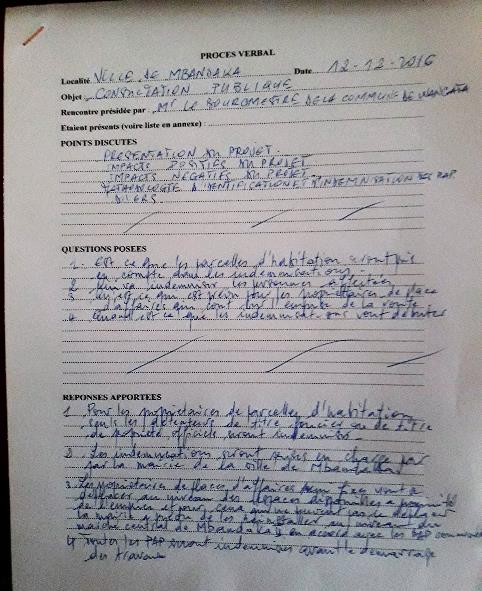 PROCES VERBAL
Localité VILLE DE MBANDAKA Date 12-12-2016
Objet : CONSULTATION PUBLIQUE
Rencontre présidée par : Mr LE BOURGMESTRE DE LA COMMUNE DE WANGATA
Etaient présents (voire liste en annexe) :
POINTS DISCUTES
PRESENTATION DU PROJET.
IMPACTS POSITIFS DU PROJET
IMPACTS NEGATIFS DU PROJET
D'IDENTIFICATION ET D'INDEMNISATION DES PAP
DIVERS
QUESTIONS POSEES
1. Est ce que les parcelles d'habitation seront pris
en compte dans les indemnisations.
2 Qui va indemniser les personnes affectées
3 qu'est ce qui est prévu pour les propriétaires de place
d'affaires qui sont sur l'emprise de la route
4. Quand est ce que les indemnisations vont débuter
REPONSES APPORTEES
1 Pour les propriétaires de parcelles d'habitation
seuls les détenteurs de titre foncier ou de titre
de propriété officiels seront indemnisés.
2. Les indemnisations seront prises en charge par
par la mairie de la ville de Mbandaka
3. Les propriétaires de places d'affaires fixes vont
déplacer au niveau des espaces disponibles à proximité
de l'emprise et pour ceux qui ne peuvent pas se déplacer
la mairie de les réinstaller au niveau du
marché central de Mbandaka en accord avec les PAP
4 toutes les PAP seront indemnisées avant le démarrage
des travaux